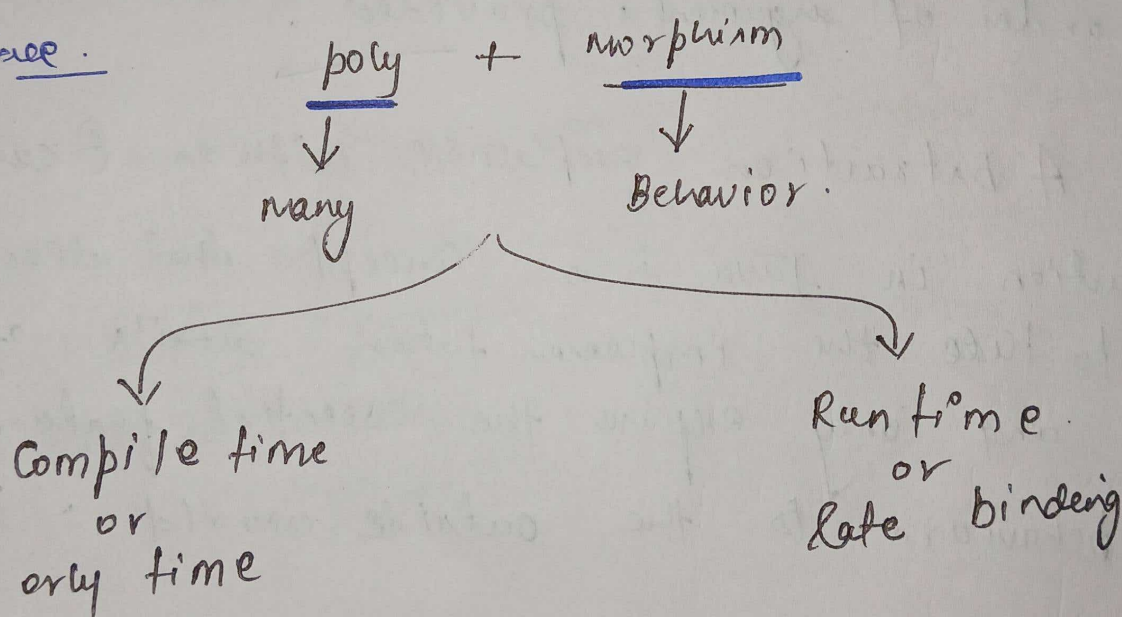 poly + Morphism
Many Behavior.
Compile time
or
orly time
Run time.
or
late binding